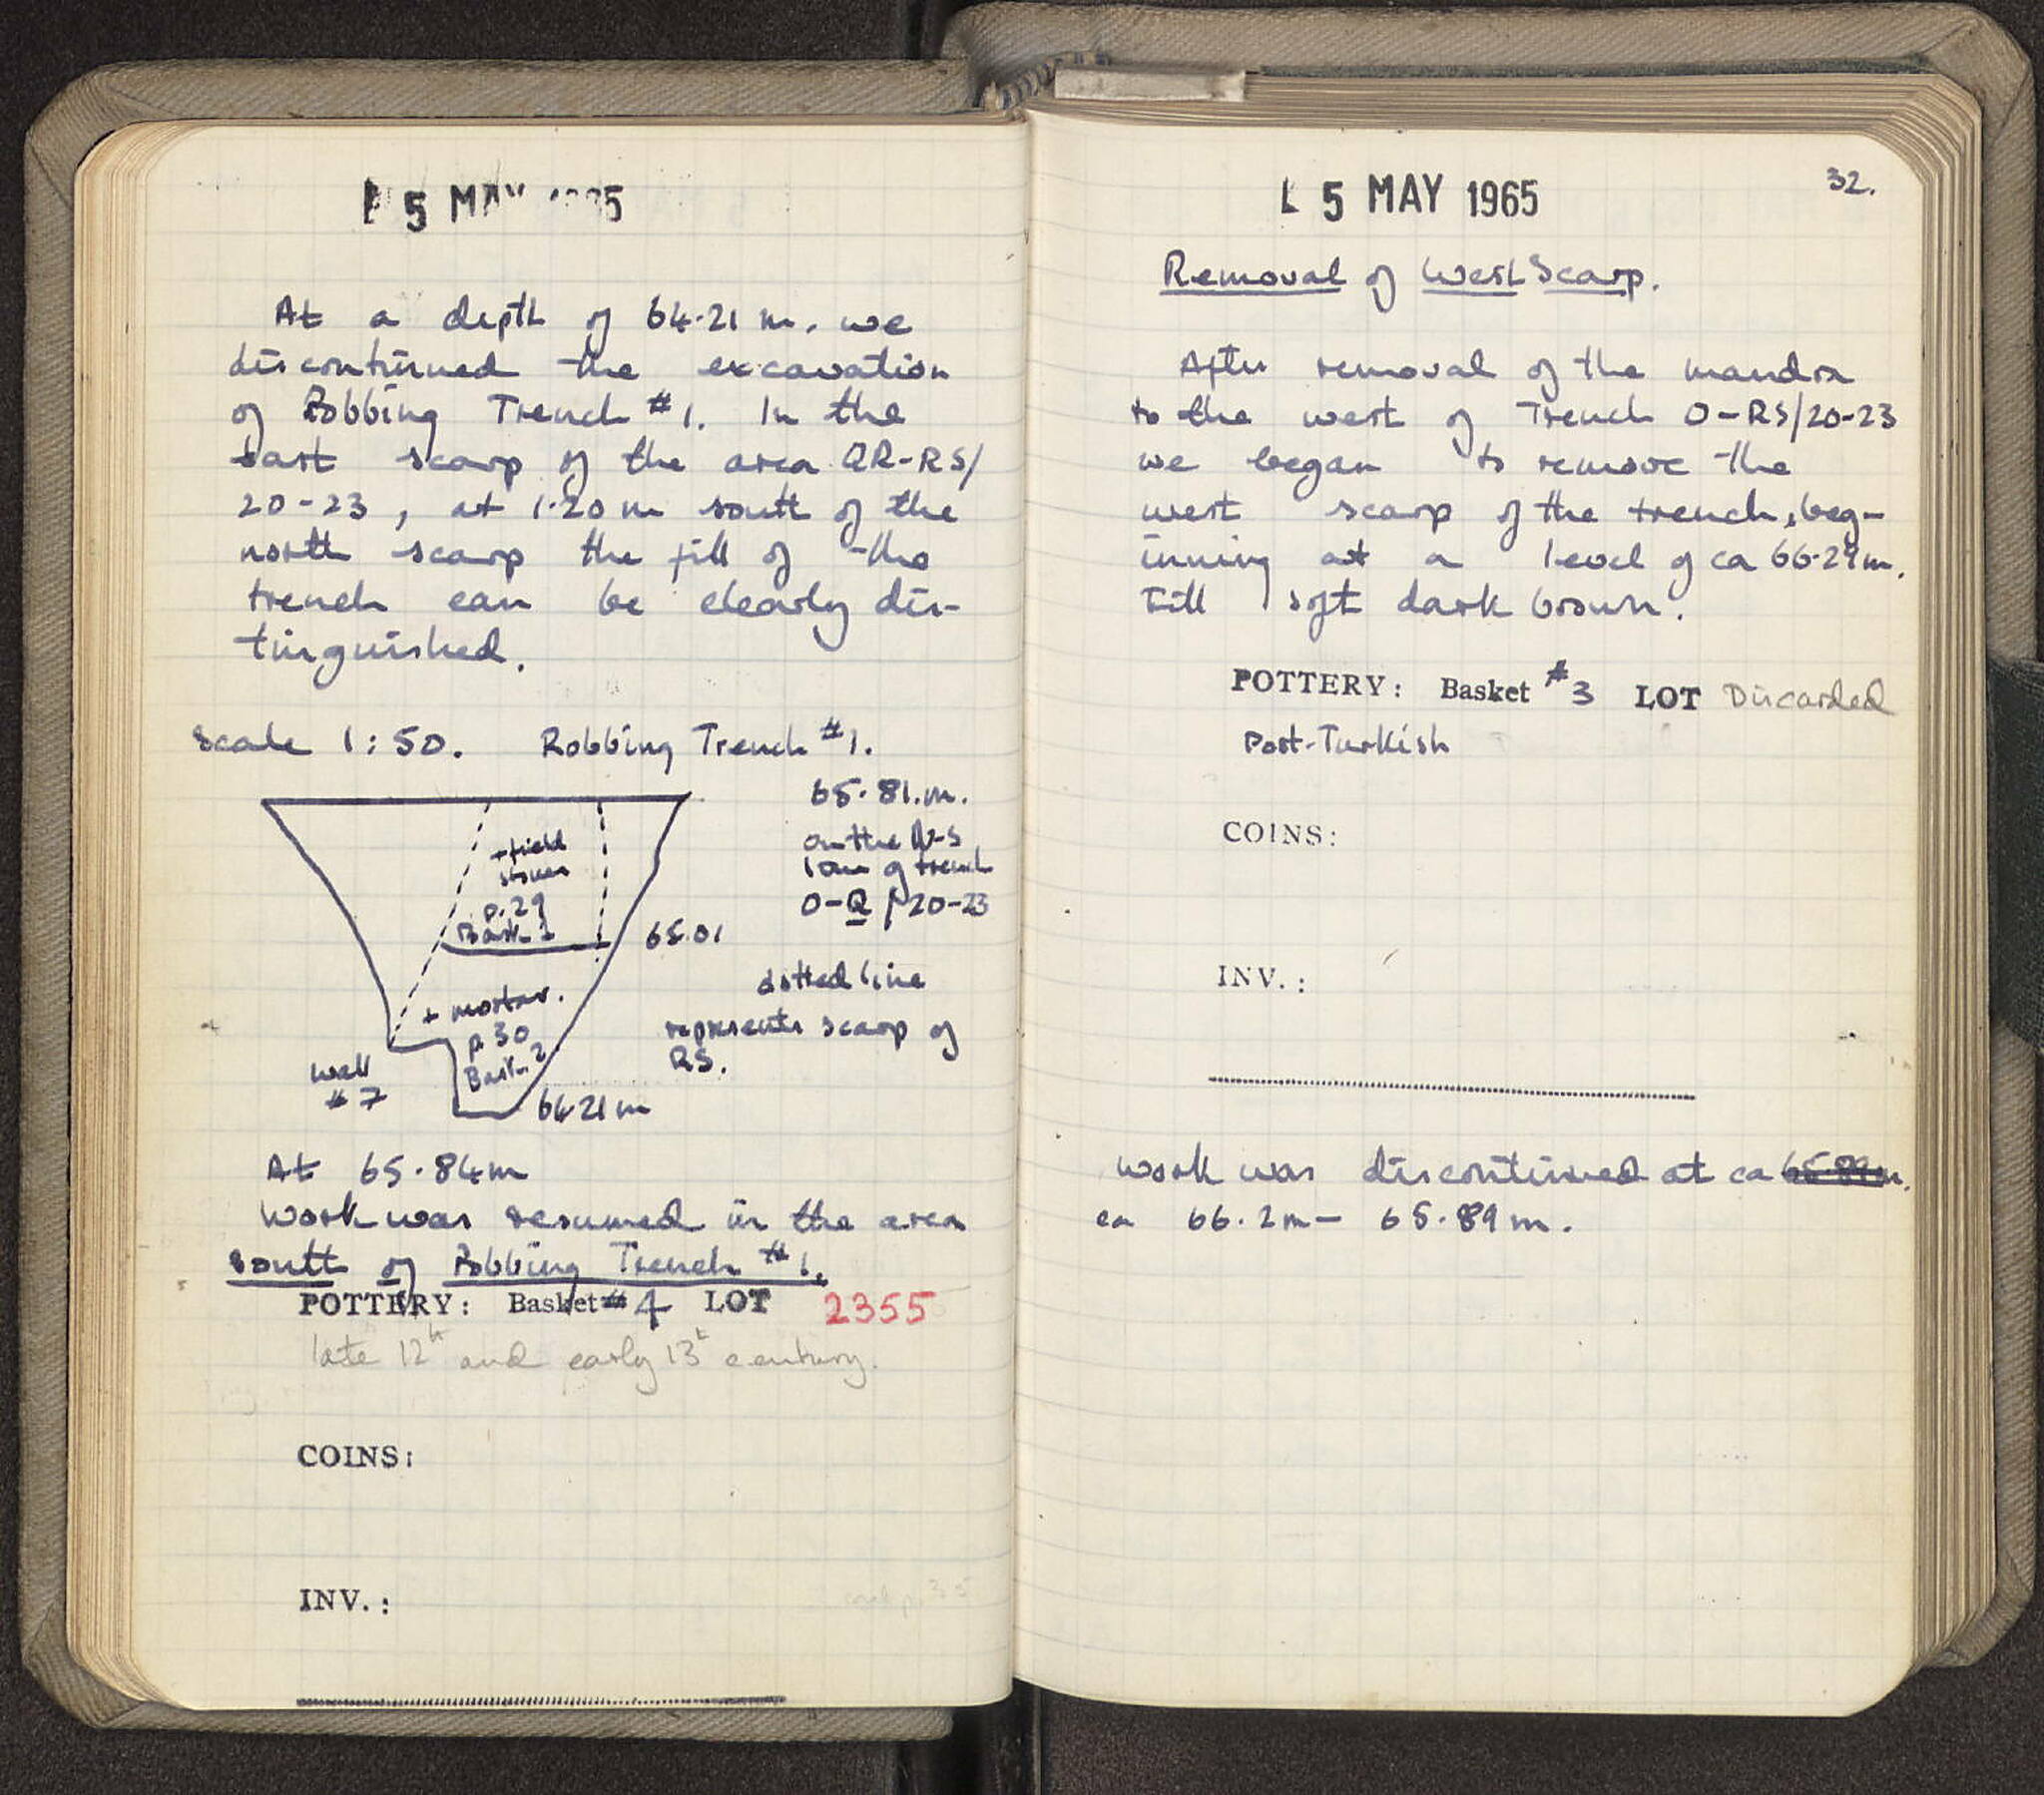 5 MAY 1965
At a depth of 64.21 m. we
discontinued the excavation
of Robbing Trench #1. In the
east scarp of the area QR-RS/
20-23, at 1.20 m south of the
north scarp the fill of the
trench can be clearly dis-
tinguished.
Scale 1:50. Robbing Trench #1.
65.81.m.
on the N-S
line of trench
O-Q / 20-23
+ field
stones
p. 29
Bask. 1
65.01
dotted line
represents scarp of
RS.
+ mortar.
p 30
Bask. 2
Wall
#7
64.21 m
At 65.84m
Work was resumed in the area
south of Robbing Trench #1.
POTTERY: Basket #4 LOT 2355
late 12th and early 13th century.
COINS:
INV.:
5 MAY 1965
32.
Removal of West Scarp.
After removal of the mandra
to the west of Trench O-RS/20-23
we began to remove the
west scarp of the trench, beg-
inning at a level of ca 66.29m.
Fill soft dark brown.
POTTERY: Basket #3 LOT Discarded
Post-Turkish
COINS:
INV.:
Work was discontinued at ca 65.89m.
ca 66.2m - 65.89m.